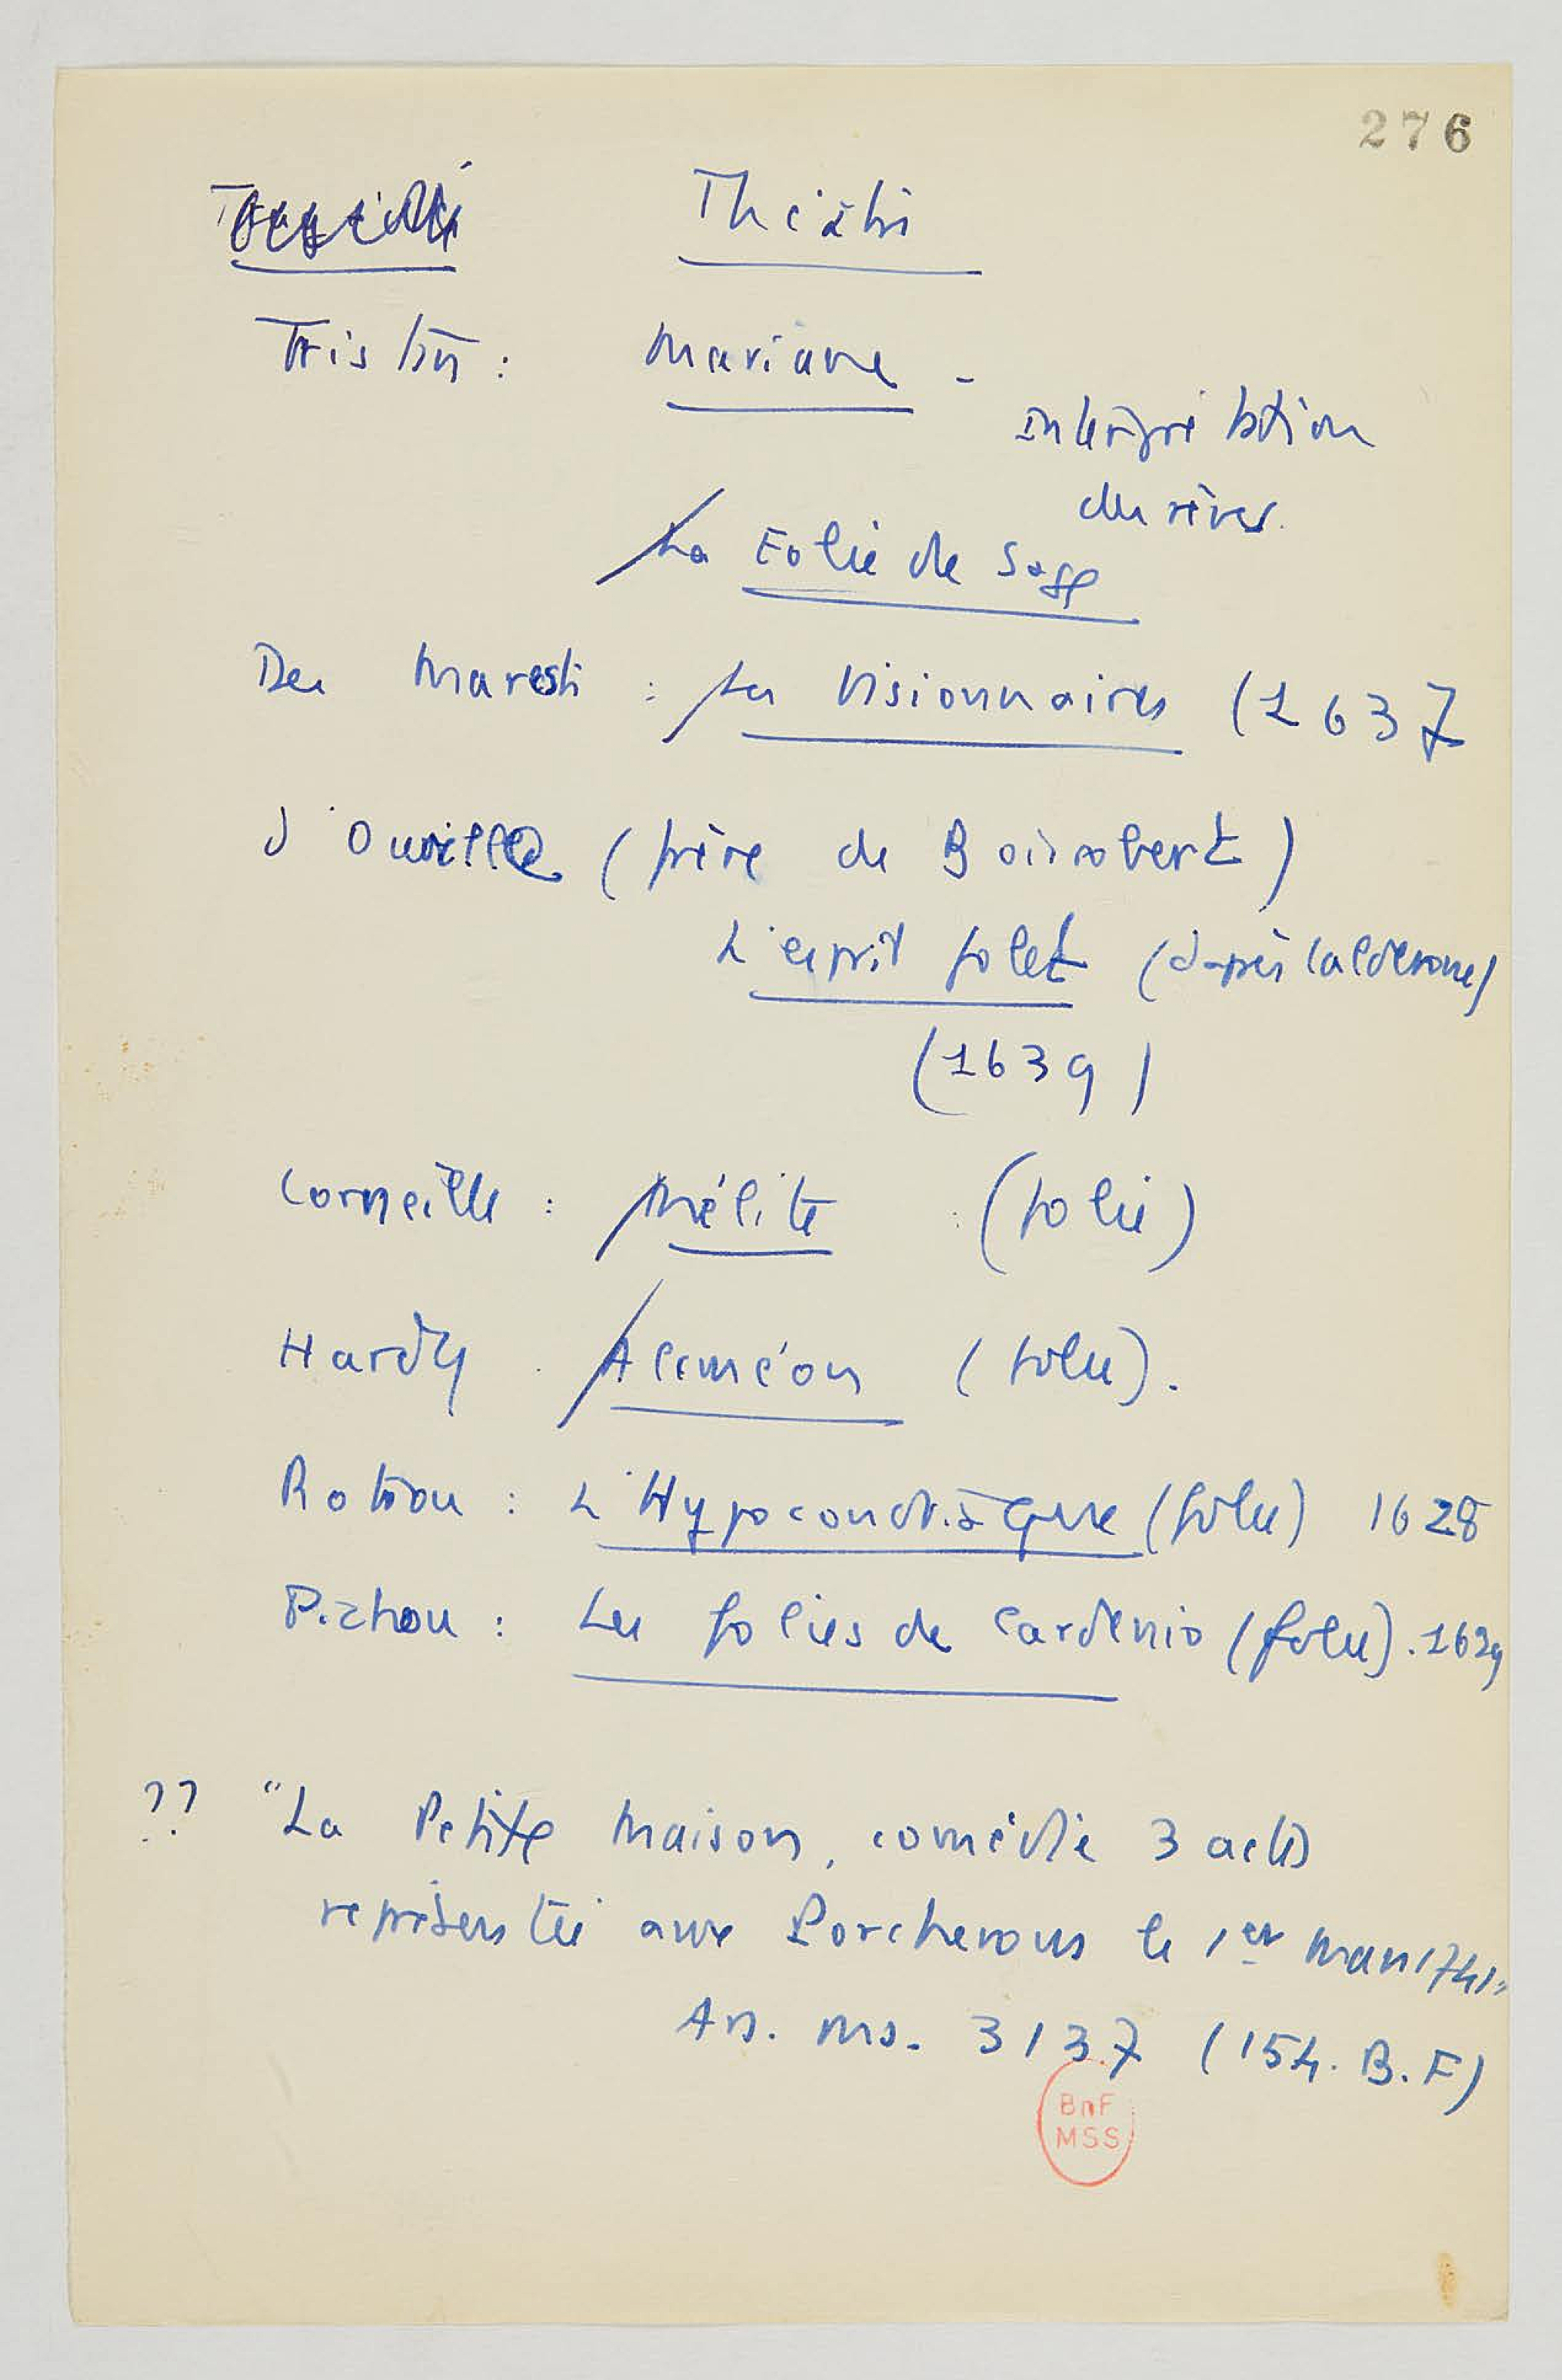 276
Théâtre
Tristan : Mariane -
Interprétation
du rêves.
La Folie de Sage
Des Marests : Les Visionnaires (1637
d'Ouville (frère de Boisrobert)
L'esprit folet (d'après Calderone)
(1639)
Corneille : Mélite : (folie)
Hardy . Alcméon (folie).
Rotrou : L'Hypocondriaque (folie) 1628
Pichou : Les folies de Cardenio (folie). 1629
?? "La Petite Maison, comédie 3 actes
représentée aux Porcherons le 1er Mars 1741"
Ars. ms. 3137 (154. B.F)
BnF
MSS